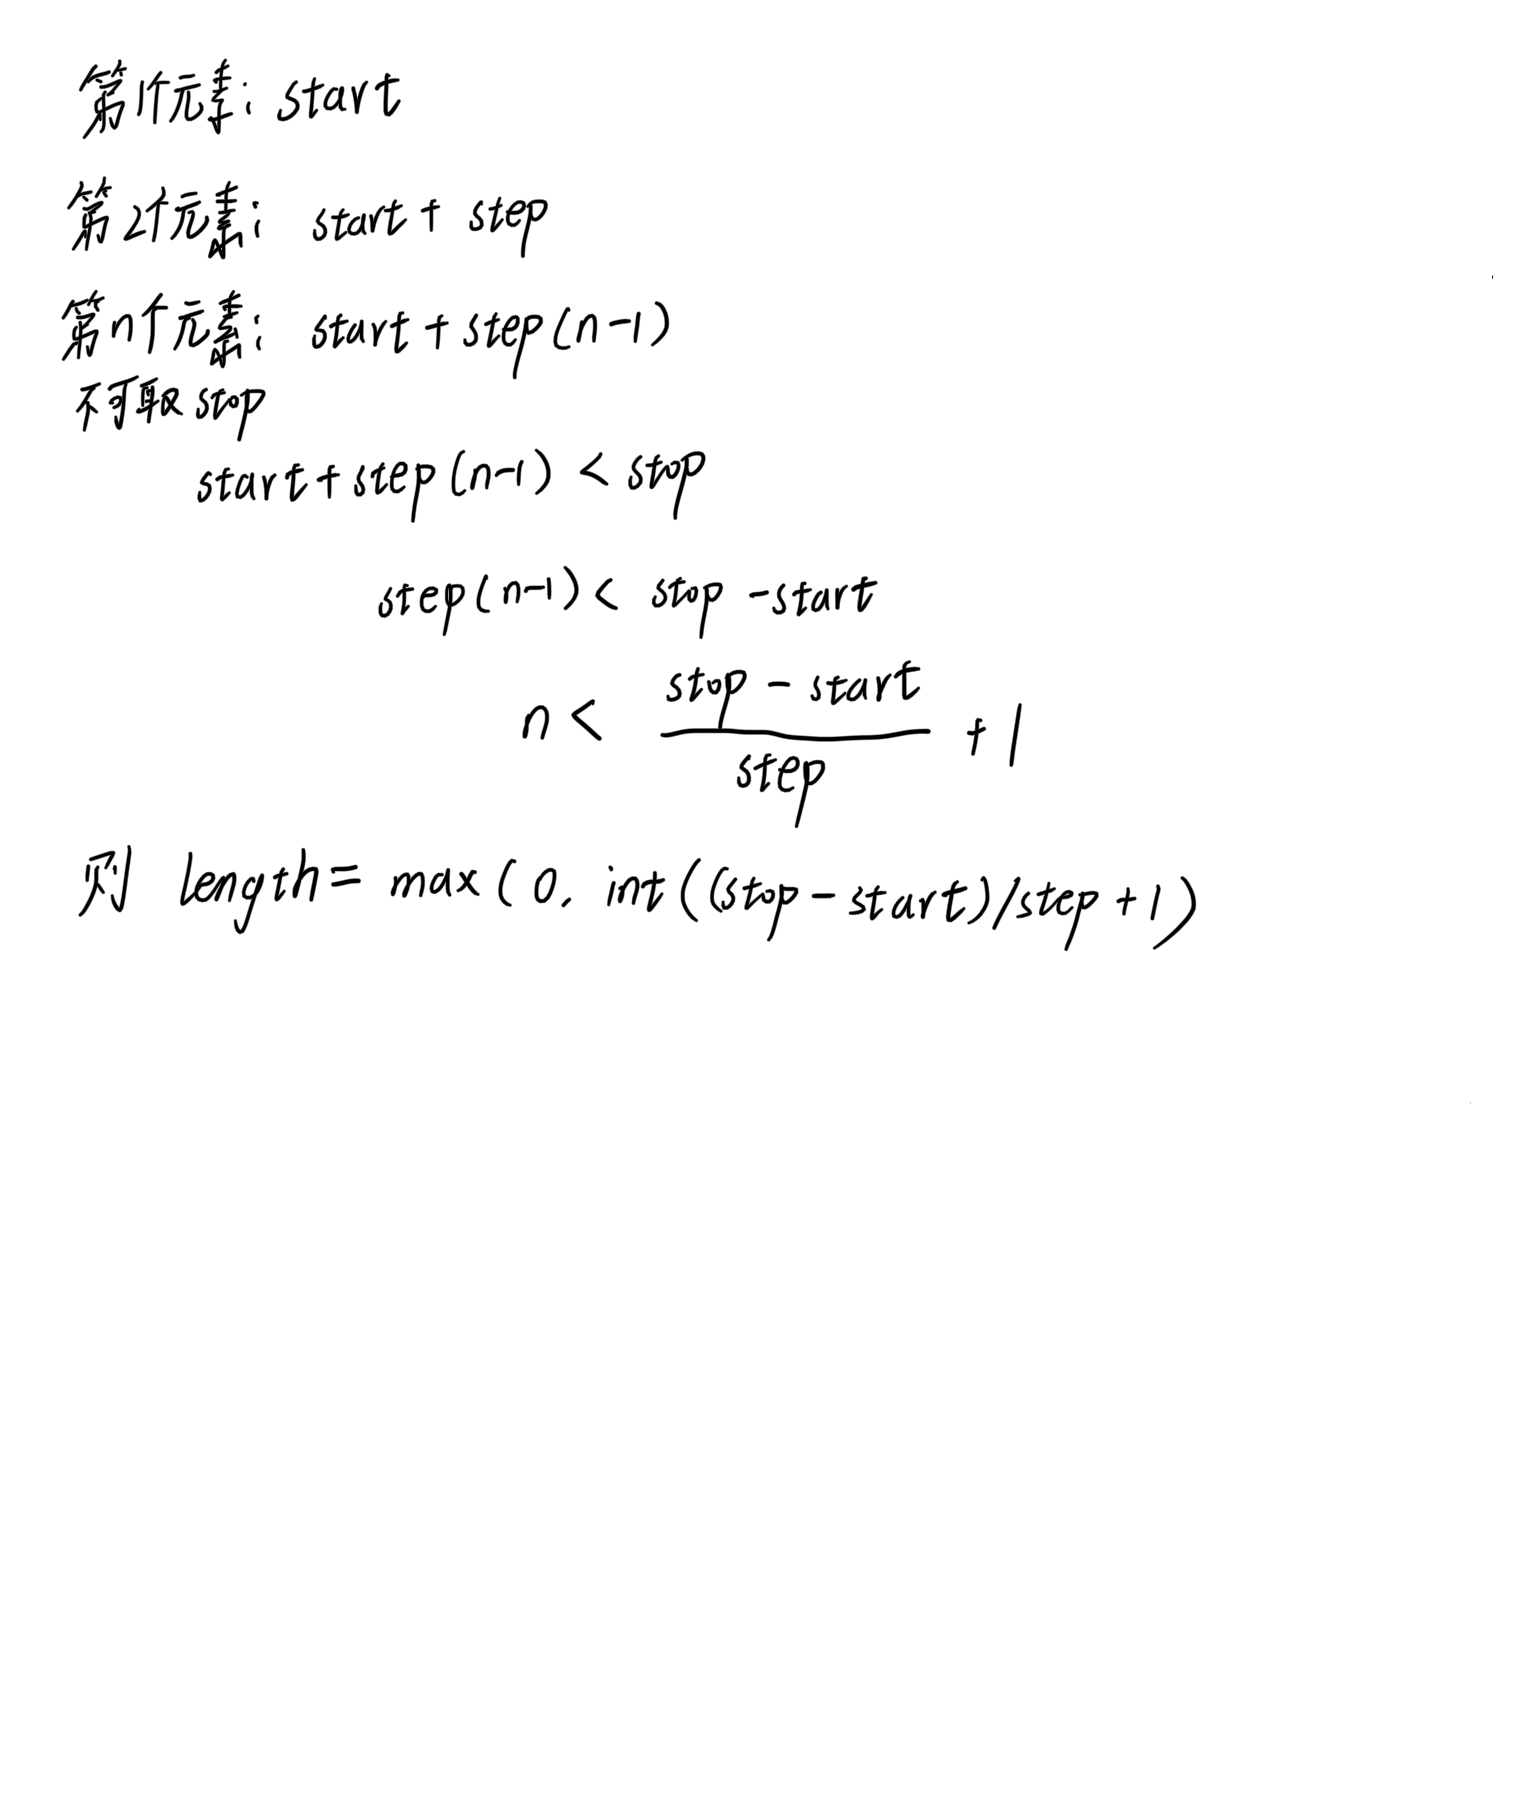 第1个元素: start
第2个元素: start + step
第n个元素: start + step(n-1)
不可取 stop
start + step(n-1) < stop
step(n-1) < stop - start
n < \frac{stop - start}{step} + 1
则 length = max(0, int((stop - start)/step + 1)